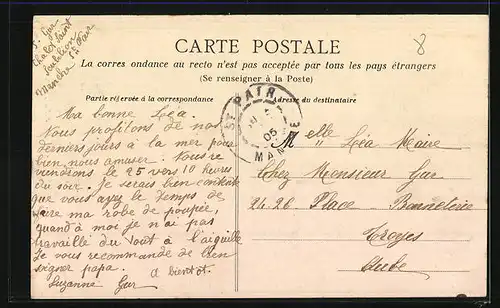 S. Gur
Chalet Saint
St Pair
Manche
CARTE POSTALE
8
La corres ondance au recto n'est pas acceptée par tous les pays étrangers
(Se renseigner à la Poste)
Partie réservée à la correspondance
Adresse du destinataire
ST PAIR
05
MANCHE
Ma bonne Léa.
Nous profitons de nos
derniers jours à la mer pour
bien nous amuser. Nous re
viendrons le 25 vers 10 heures
du soir. Je serais bien contente
que vous ayez le temps de
faire ma robe de poupée,
quand à moi je n'ai pas
travaillé du tout à l'aiguille
Je vous recommande de bien
soigner papa.
a bientôt.
Suzanne Gur
Melle Léa Maire
Chez Monsieur Gur
24.26 Place Bonneterie
Troyes
Aube